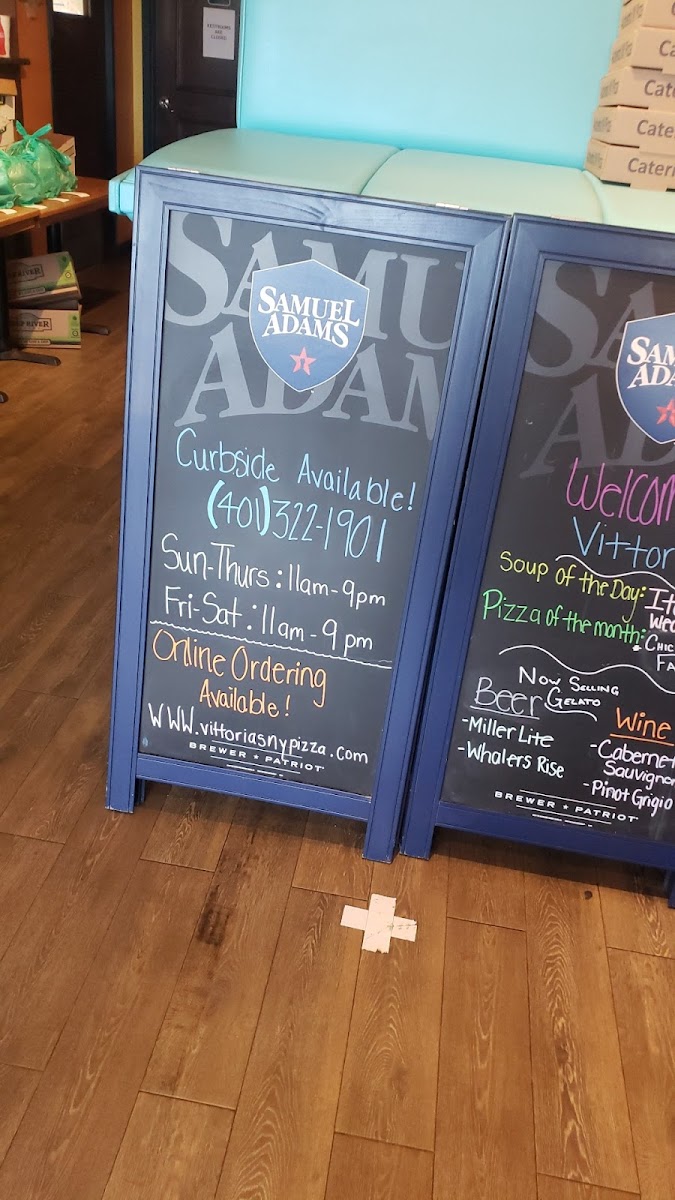 RESTROOMS
ARE
CLOSED
Cate
Cate
Cate
Cateri
SAMUEL
ADAMS
SAMUEL
ADAMS
Curbside Available!
(401)322-1901
Sun-Thurs: 11am-9pm
Fri-Sat: 11am-9pm
Online Ordering
Available!
WWW.vittoriasnypizza.com
BREWER ★ PATRIOT
SAM
ADA
Welcom
Vittor
Soup of the Day: Ita
Wed
Pizza of the month:
Chic
Fa
Now Selling
Gelato
Beer
-Miller Lite
-Whalers Rise
Wine
-Cabernet
Sauvignon
-Pinot Grigio
BREWER ★ PATRIOT